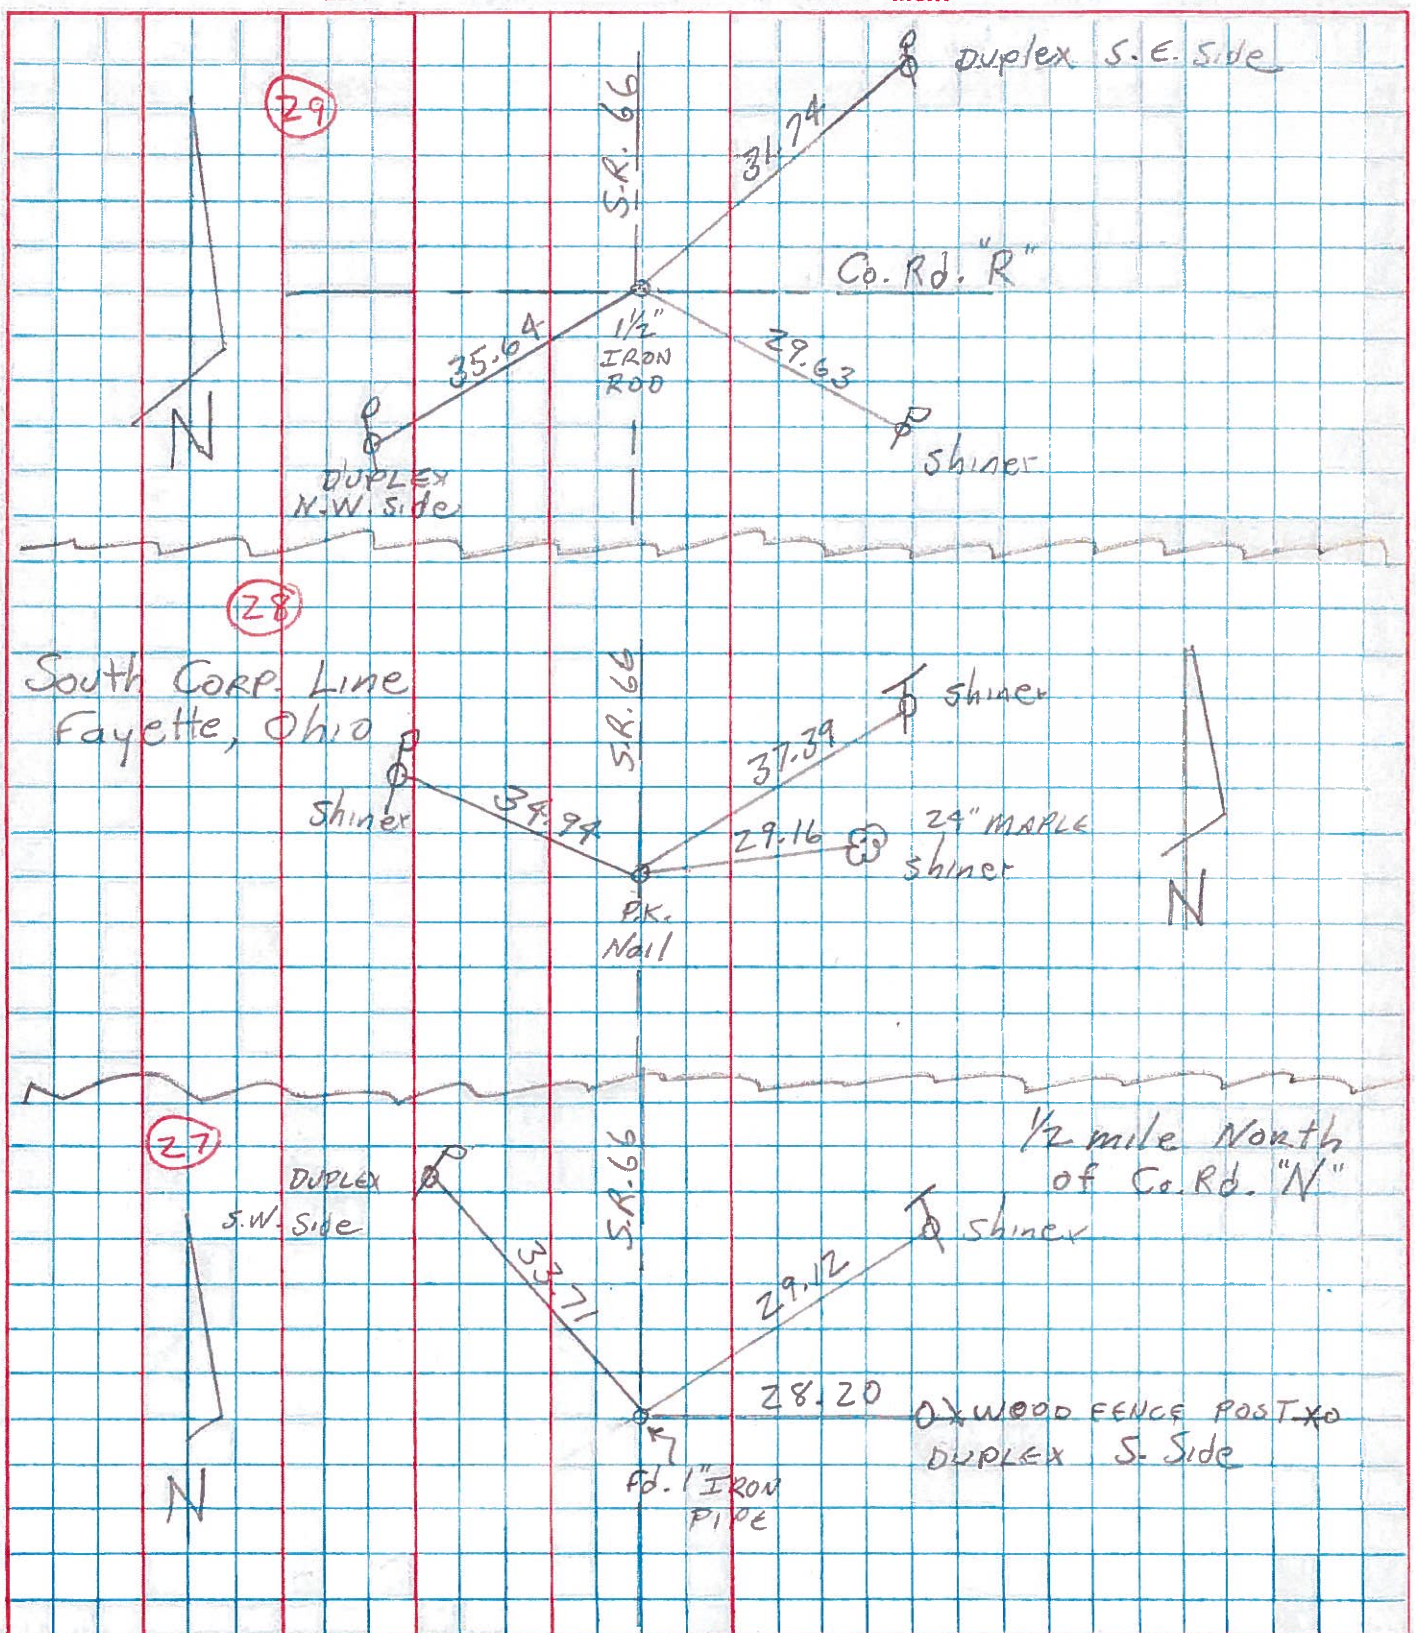 29
S.R. 66
Duplex S.E. Side
31.74
Co. Rd. "R"
35.64
1 1/2"
IRON
ROD
29.63
Shiner
DUPLEX
N.W. Side
N
28
South CORP. Line
Fayette, Ohio
S.R. 66
Shiner
37.39
Shiner
34.94
29.16
24" MAPLE
Shiner
P.K.
Nail
N
27
1/2 mile North
of Co. Rd. "N"
S.R. 66
DUPLEX
S.W. Side
Shiner
33.71
29.12
28.20
WOOD FENCE POST
DUPLEX S. Side
Fd. 1" IRON
PIPE
N